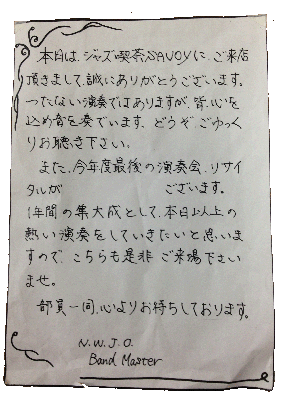 本日は、ジャズ喫茶SAVOYに、ご来店
頂きまして、誠にありがとうございます。
つたない演奏ではありますが、皆、心を
込め音を奏でいます、どうぞ、ごゆっく
りお聴き下さい。
また、今年度最後の演奏会、リサイ
タルが ございます。
1年間の集大成として、本日以上の
熱い演奏をしていきたいと思いま
すので、こちらも是非ご来場下さい
ませ。
部員一同、心よりお待ちしております。
N.W.J.O.
Band Master